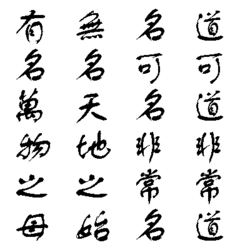 道可道非常道
名可名非常名
無名天地之始
有名萬物之母